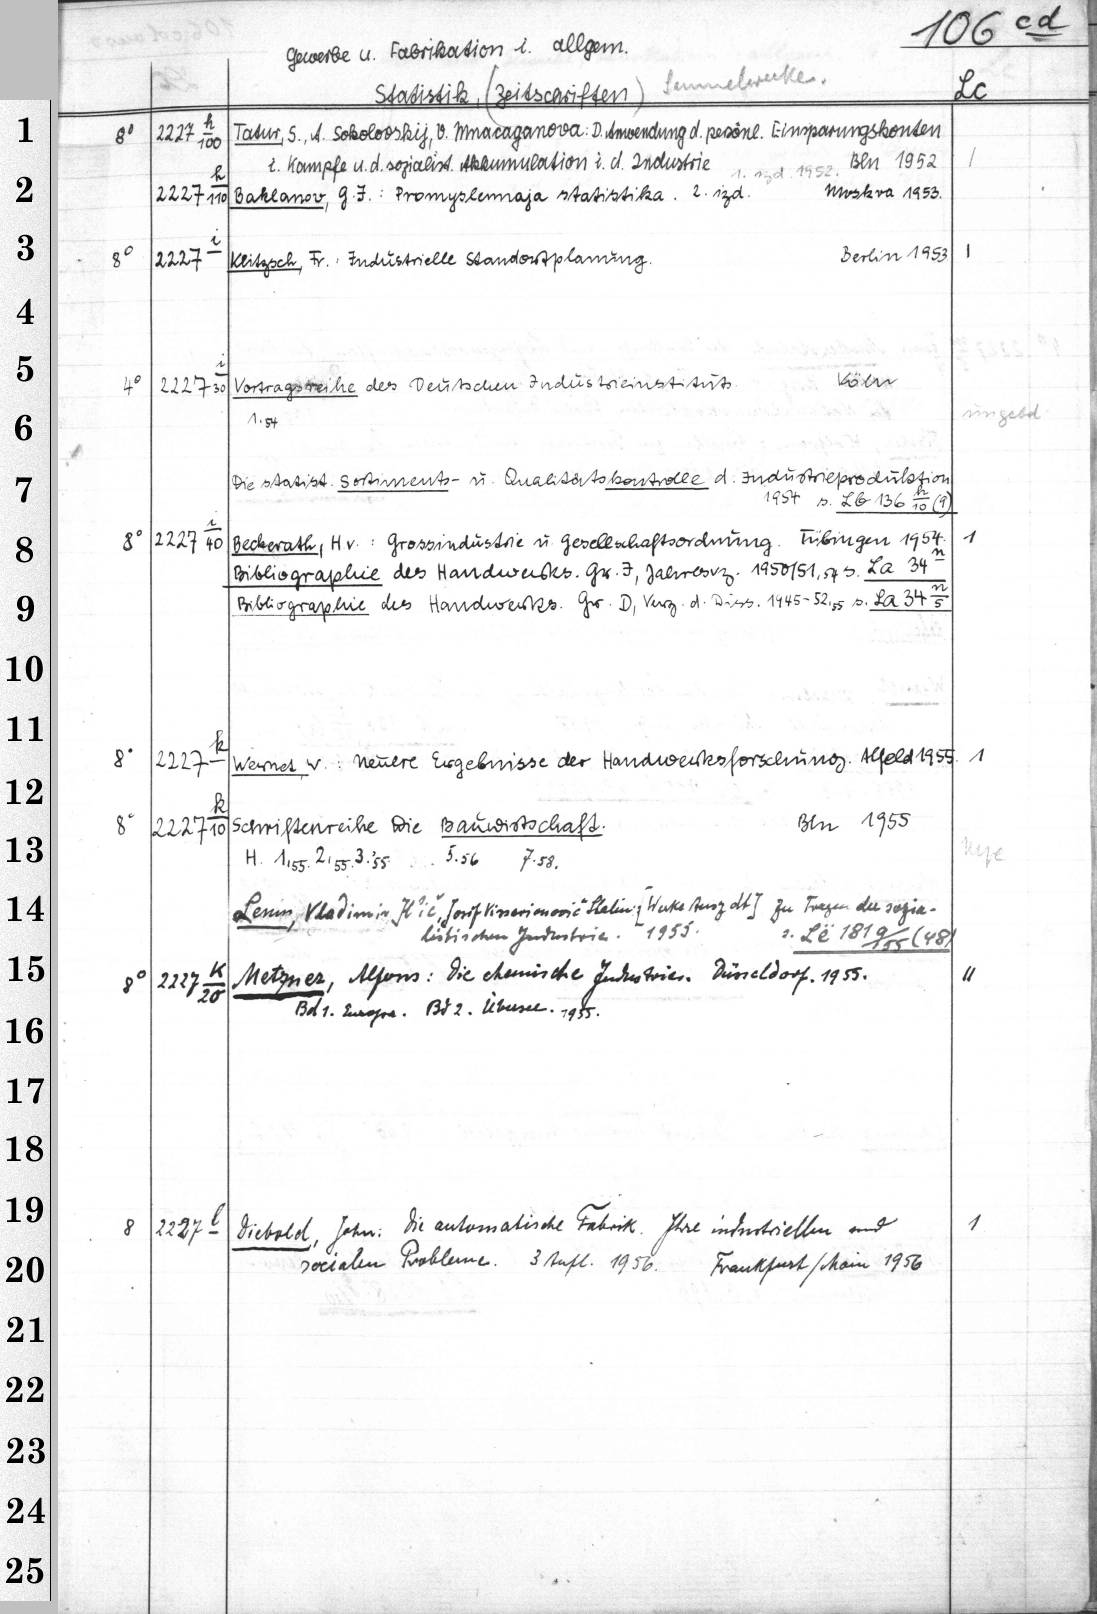 106 cd
Gewerbe u. Fabrikation i. allgem.
Statistik, (Zeitschriften) Sammelwerke. Lc
1 8° 2227 h/100 Tatur, S., A. Sokolovskij, V. Mnacaganova: D. Anwendung d. persönl. Einsparungskonten
i. Kampfe u. d. sozialist. Akkumulation i. d. Industrie 1. izd. 1952. Bln 1952 1
2 2227 h/110 Baklanov, G. I.: Promyslennaja statistika. 2. izd. Moskva 1953.
3 8° 2227 i Klitzsch, Fr.: Industrielle Standortplanung. Berlin 1953 1
4
5 4° 2227 i/30 Vortragsreihe des Deutschen Industrieinstituts Köln
6 1.54 ungebd
7 Die statist. Sortiments- u. Qualitätskontrolle d. Industrieproduktion
1954 s. Lb 136 h/10 (9)
8 8° 2227 i/40 Beckerath, H v.: Grossindustrie u. Gesellschaftsordnung. Tübingen 1954. 1
Bibliographie des Handwerks. Gr. I, Jahresvz. 1950/51,54 s. La 34 n
9 Bibliographie des Handwerks. Gr. D, Verz. d. Diss. 1945-52,55 s. La 34 n/5
10
11
8° 2227 k Wernet, W.: Neuere Ergebnisse der Handwerksforschung. Alfeld 1955. 1
12
8° 2227 k/10 Schriftenreihe Die Bauwirtschaft. Bln 1955
13 H. 1,55. 2,55. 3.'55 5.56 7.58.
14 Lenin, Vladimir Il'ič, Josif Vissarionovič Stalin: [Werke Ausz dt] Zu Fragen der sozia-
listischen Industrie. 1955. s. Lë 181 g/155 (48)
15 8° 2227 k/20 Metzner, Alfons: Die chemische Industrie. Düsseldorf. 1955. "
Bd 1. Europa. Bd 2. Übersee. 1955.
16
17
18
19 8 2227 l Diebold, John: Die automatische Fabrik. Ihre industriellen und 1
20 socialen Probleme. 3 Aufl. 1956. Frankfurt/Main 1956
21
22
23
24
25